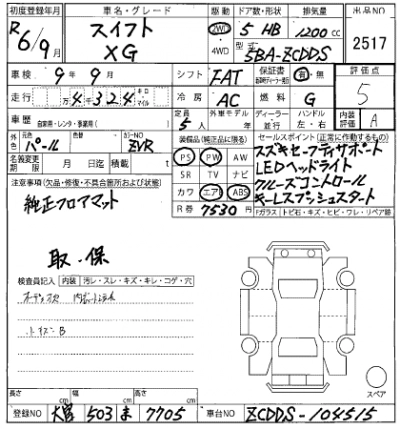 初度登録年月 車名・グレード 駆動 ドア数・形状 排気量 出品NO
R 6/9月 スイフト XG 2WD 4WD 5 HB 1200 cc 2517
型式 5BA-ZCDDS
車検 9年 9月 シフト FAT 保証書 有・無 評価点 5
走行 万 4千324 キロ マイル 冷房 AC 燃料 G
車歴 自家用・レンタ・事業用 定員 5人 外車モデル 年 ディーラー 並行 ハンドル 左・右 内装評価 A
外色 元色 パール 色 カラーNO ZVR
装備品(純正品に限る) セールスポイント(正常に動作するもの)
名義変更期限 月 日迄 積載 t
PS PW AW
SR TV ナビ
カワ エアB ABS
R券 7530円
スズキセーフティサポート
LEDヘッドライト
クルーズコントロール
キーレスプッシュスタート
Fガラス トビ石・キズ・ヒビ・ワレ・リペア跡
注意事項(欠品・修復・不具合箇所および状態)
純正フロアマット
取・保
検査員記入 内装 汚レ・スレ・キズ・キレ・コゲ・穴
長さ cm 幅 cm 高さ cm
スペア
登録NO 大宮 503 ま 7705 車台NO ZCDDS-104515